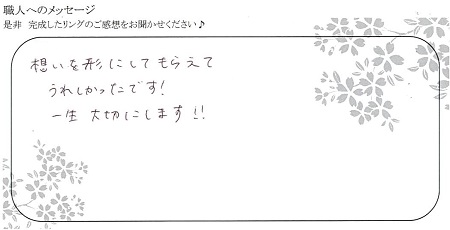 職人へのメッセージ
是非 完成したリングのご感想をお聞かせください♪
想いを形にしてもらえて
うれしかったです!
一生 大切にします!!